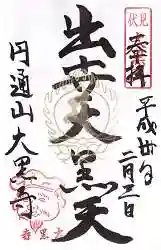 伏見
奉拝
平成廿年
二月二日
出世大黒天
円通山大黒寺
大黒寺